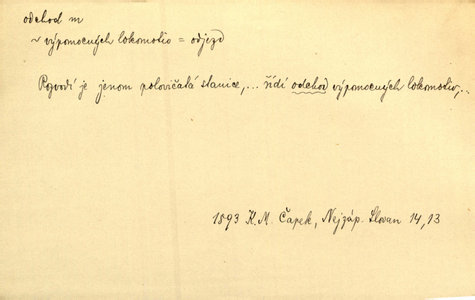 odchod m
~ výpomocných lokomotiv = odjezd
Rozvodí je jenom polovičatá stanice,... řídí odchod výpomocných lokomotiv,..
1893 K. M. Čapek, Nejzáp. Slovan 14, 13